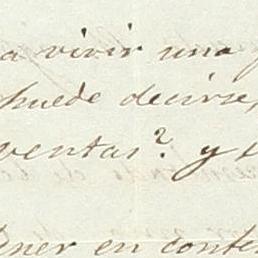 a vivir una
puede decirse,
ventas? y
ner en conte